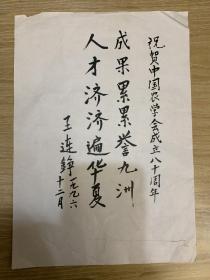 祝贺中国农学会成立八十周年
成果累累誉九洲
人才济济遍华夏
王连铮
一九九六
十二月